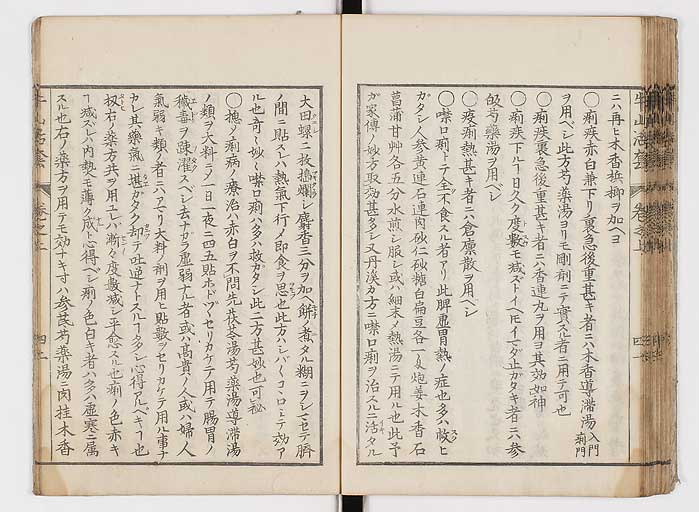 ニハ再ヒ木香檳榔ヲ加ヘヨ
○痢疾赤白兼下リ裏急後重甚キ者ニハ木香導滞湯 入門 痢門
ヲ用ベシ此方芍薬湯ヨリモ剛剤ニテ實スル者ニ用テ可也
○痢疾裏急後重甚キ者ニハ香連丸ヲ用ヨ其効如神
○痢疾下ルヿ日久ク度數モ减ズトイヘモイマダ止ガタキ者ニハ參
芪芍薬湯ヲ用ベシ
○疫痢熱甚キ者ニハ倉廩散ヲ用ベシ
○噤口痢トテ全不食スル者アリ此脾虚胃熱ノ症也多ハ救ヒ
ガタシ人參黄連石連肉砂仁砂糖白扁豆各一匁炮姜木香石
菖蒲甘艸各五分水煎シ服シ或ハ細末メ熱湯ニテ用ル也此予
ガ家傳ノ妙方取効甚多シ又丹溪カ方ニ噤口痢ヲ治スルニ活タル
大田螺二枚擣爛シ麝香三分ヲ加ヘ餅ニ煮タル糊ニヲシマセテ臍
ノ間ニ貼スレハ熱氣下行メ即食ヲ思也此方ハシバ〱コヽロミテ効ア
ル也奇〻妙〻噤口痢ハ多ハ救ガタシ此二方甚妙也可秘
○摠メ痢病ノ療治ハ赤白ヲ不問先茯苓湯芍薬湯導滞湯
ノ類ヲ大料ニメ一日一夜ニ四五貼ホドヅヽセリカケテ用テ腸胃ノ
穢毒ヲ疎濯スベシ去ナガラ虚弱ナル者或ハ高貴ノ人或ハ婦人
氣弱キ類ノ者ニハアマリ大料ノ剤ヲ用ヒ貼數ヲセリカケテ用ル事ナ
カレ其薬氣ニ堪ガタク却テ吐逆ナトスルヿ多シ心得アルベキヿ也
扨右ノ薬方共ヲ用ユレハ漸々度數减シ平愈スル也痢ノ色赤キ
ヿ减ズレハ内熱モ薄ク成ト心得ベシ痢ノ色白キ者ハ多ハ虚寒ニ属
スル也右ノ薬方ヲ用テモ効ナキ寸ハ參芪芍薬湯ニ肉桂木香